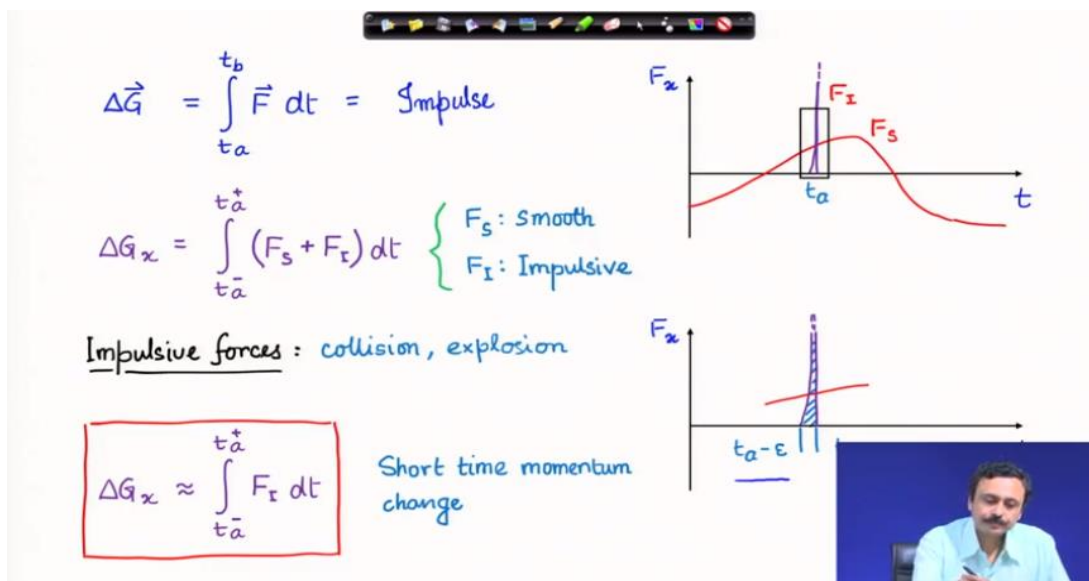 ΔG⃗ = ∫_{t_a}^{t_b} F⃗ dt = Impulse
ΔG_x = ∫_{t_a^-}^{t_a^+} (F_S + F_I) dt { F_S : Smooth
F_I : Impulsive
Impulsive forces : collision, explosion
ΔG_x ≈ ∫_{t_a^-}^{t_a^+} F_I dt
Short time momentum
change
F_x
F_I
F_S
t_a
t
F_x
t_a-ε